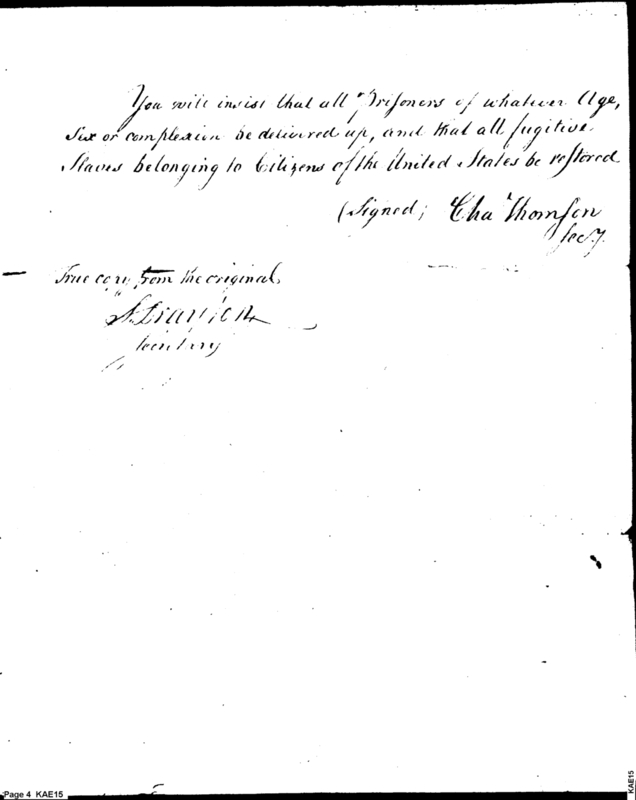 You will insist that all Prisoners of whatever Age,
Sex or complexion be delivered up, and that all fugitive
Slaves belonging to Citizens of the United States be restored
(Signed; Cha Thomson
Secy.
True copy from the original,
Secretary
Page 4 KAE15
KAE15